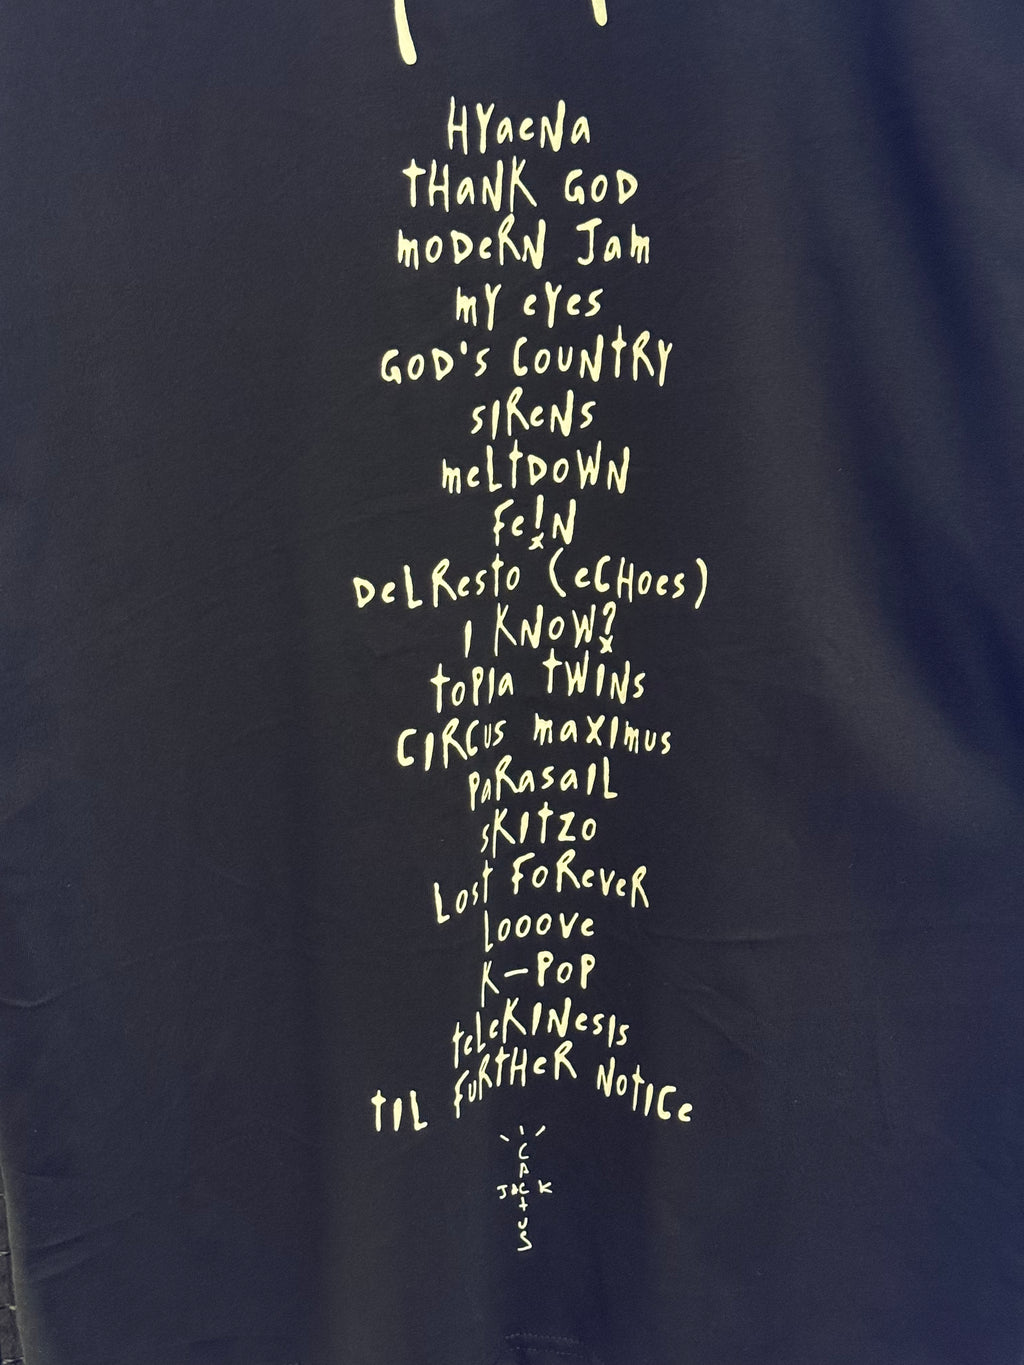 HYaeNa
tHaNK GOD
moDeRN Jam
mY eYes
GOD's COUNtRY
sIReNs
meLtDOWN
Fe!N
DeLResto (eCHoes)
I KNOW?
toPIa tWINs
CIRCUs maxImus
PaRasaIL
sKItzo
Lost FoReveR
LoooVe
K-POP
teLeKINesIs
tIL FuRtHeR NotICe
CACtUS
JACK